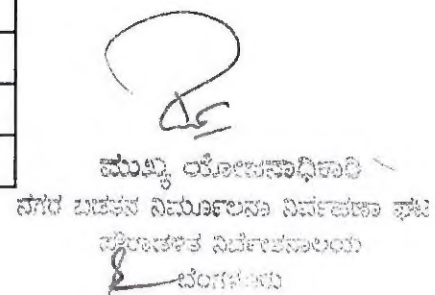 ಮುಖ್ಯ ಯೋಜನಾಧಿಕಾರಿ
ನಗರ ಬಡತನ ನಿರ್ಮೂಲನಾ ನಿರ್ವಹಣಾ ಘಟ
ಪೌರಾಡಳಿತ ನಿರ್ದೇಶನಾಲಯ
ಬೆಂಗಳೂರು